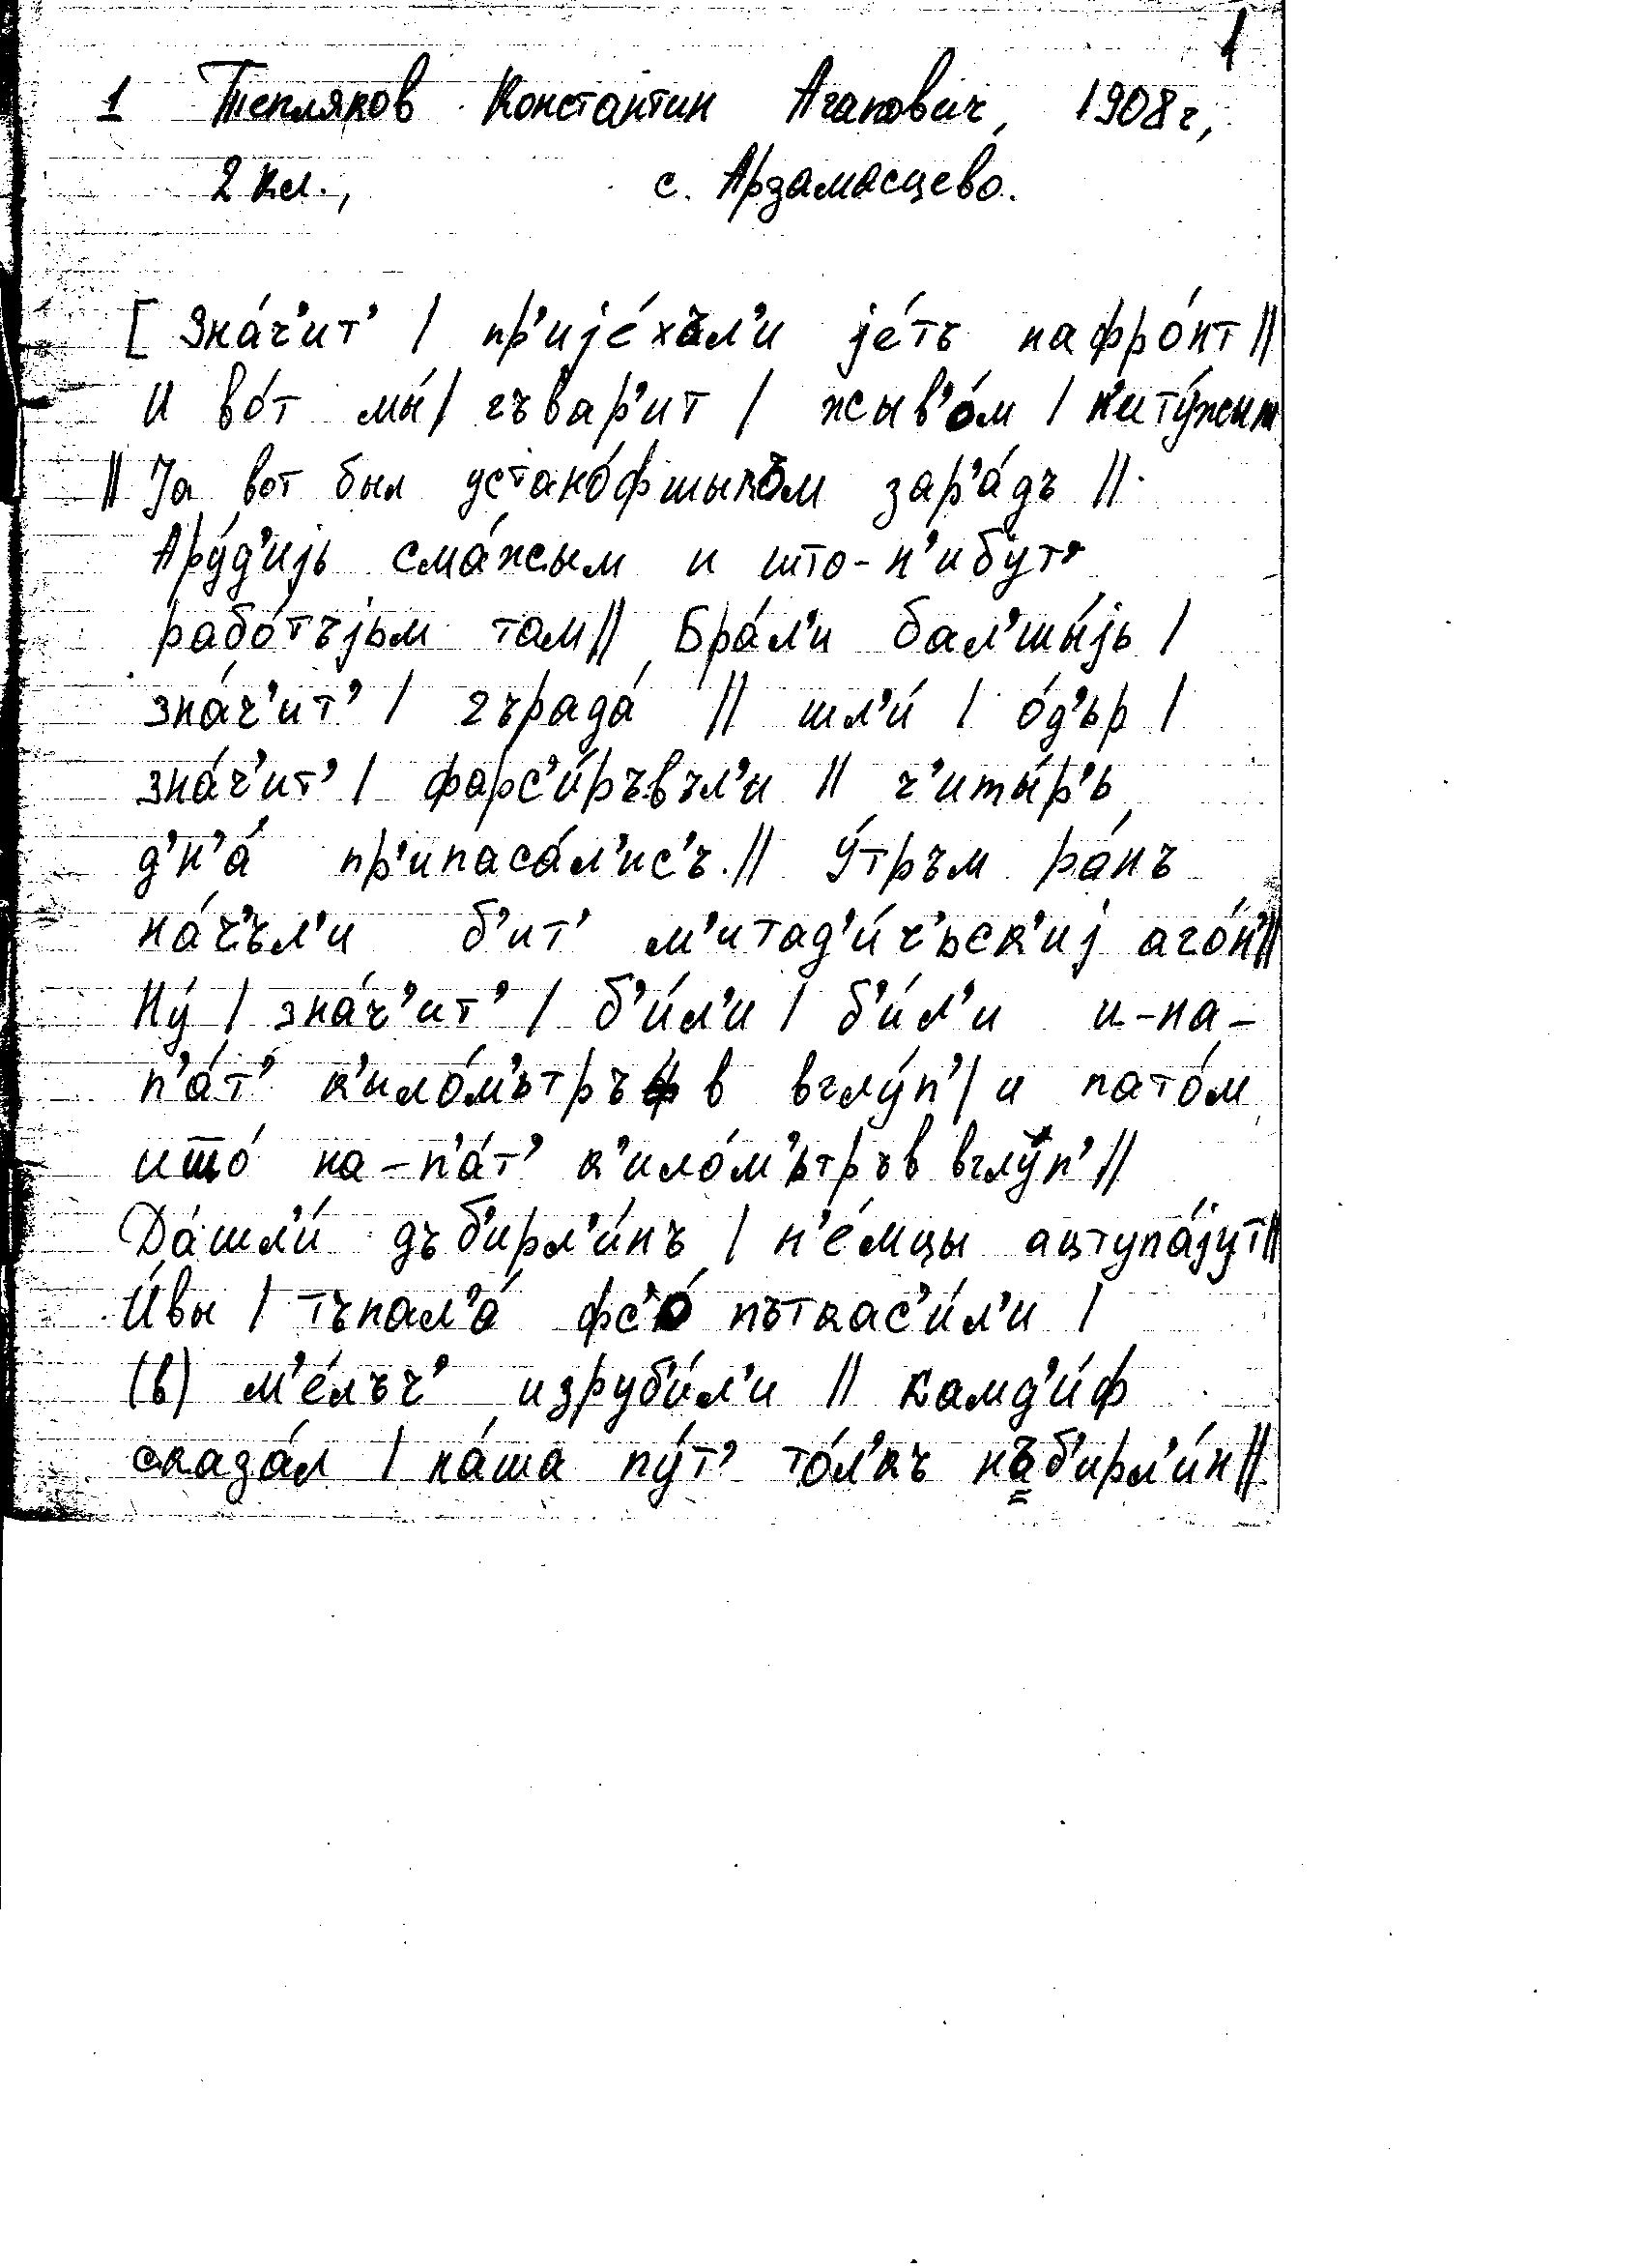 1
1 Тепляков Константин Агапович, 1908г,
2 кл., с. Арзамасцево.
[ Зна́ч'ит' / пр'ије́хъл'и је́тъ нафро́нт //
И во́т мы́ / гъвар'ит / жыв'о́м / н'иту́жым
// Ја вот был устано́фшыкъм зар'а́дъ //
Ару́д'ијь сма́жым и што-н'ибут'
рабо́тъјьм там // Бра́л'и бал'шы́јь /
зна́ч'ит' / гърада́ // шл'и́ / о́д'ьр /
зна́ч'ит' / фарс'и́ръвъл'и // ч'иты́р'ь
д'н'а́ пр'ипаса́л'ис'ъ // У́тръм ра́нъ
на́ч'ъл'и б'ит' м'итад'и́ч'ьск'иј аго́н' //
Ну́ / зна́ч'ит' / б'и́л'и / б'и́л'и и-на-
п'а́т' к'ило́м'ътръ в вглу́п' / и пато́м
ишо́ на-п'а́т' к'ило́м'ътръв вглу́п' //
Да́шл'и́ дъб'ирл'и́нъ / н'е́мцы ацтупа́јут //
И́вы / тъпал'а́ фс'о́ пъткас'и́л'и /
(в) м'е́лъч' изруб'и́л'и // Камд'и́ф
сказа́л / на́ша пу́т' то́л'къ нъб'ирл'и́н //